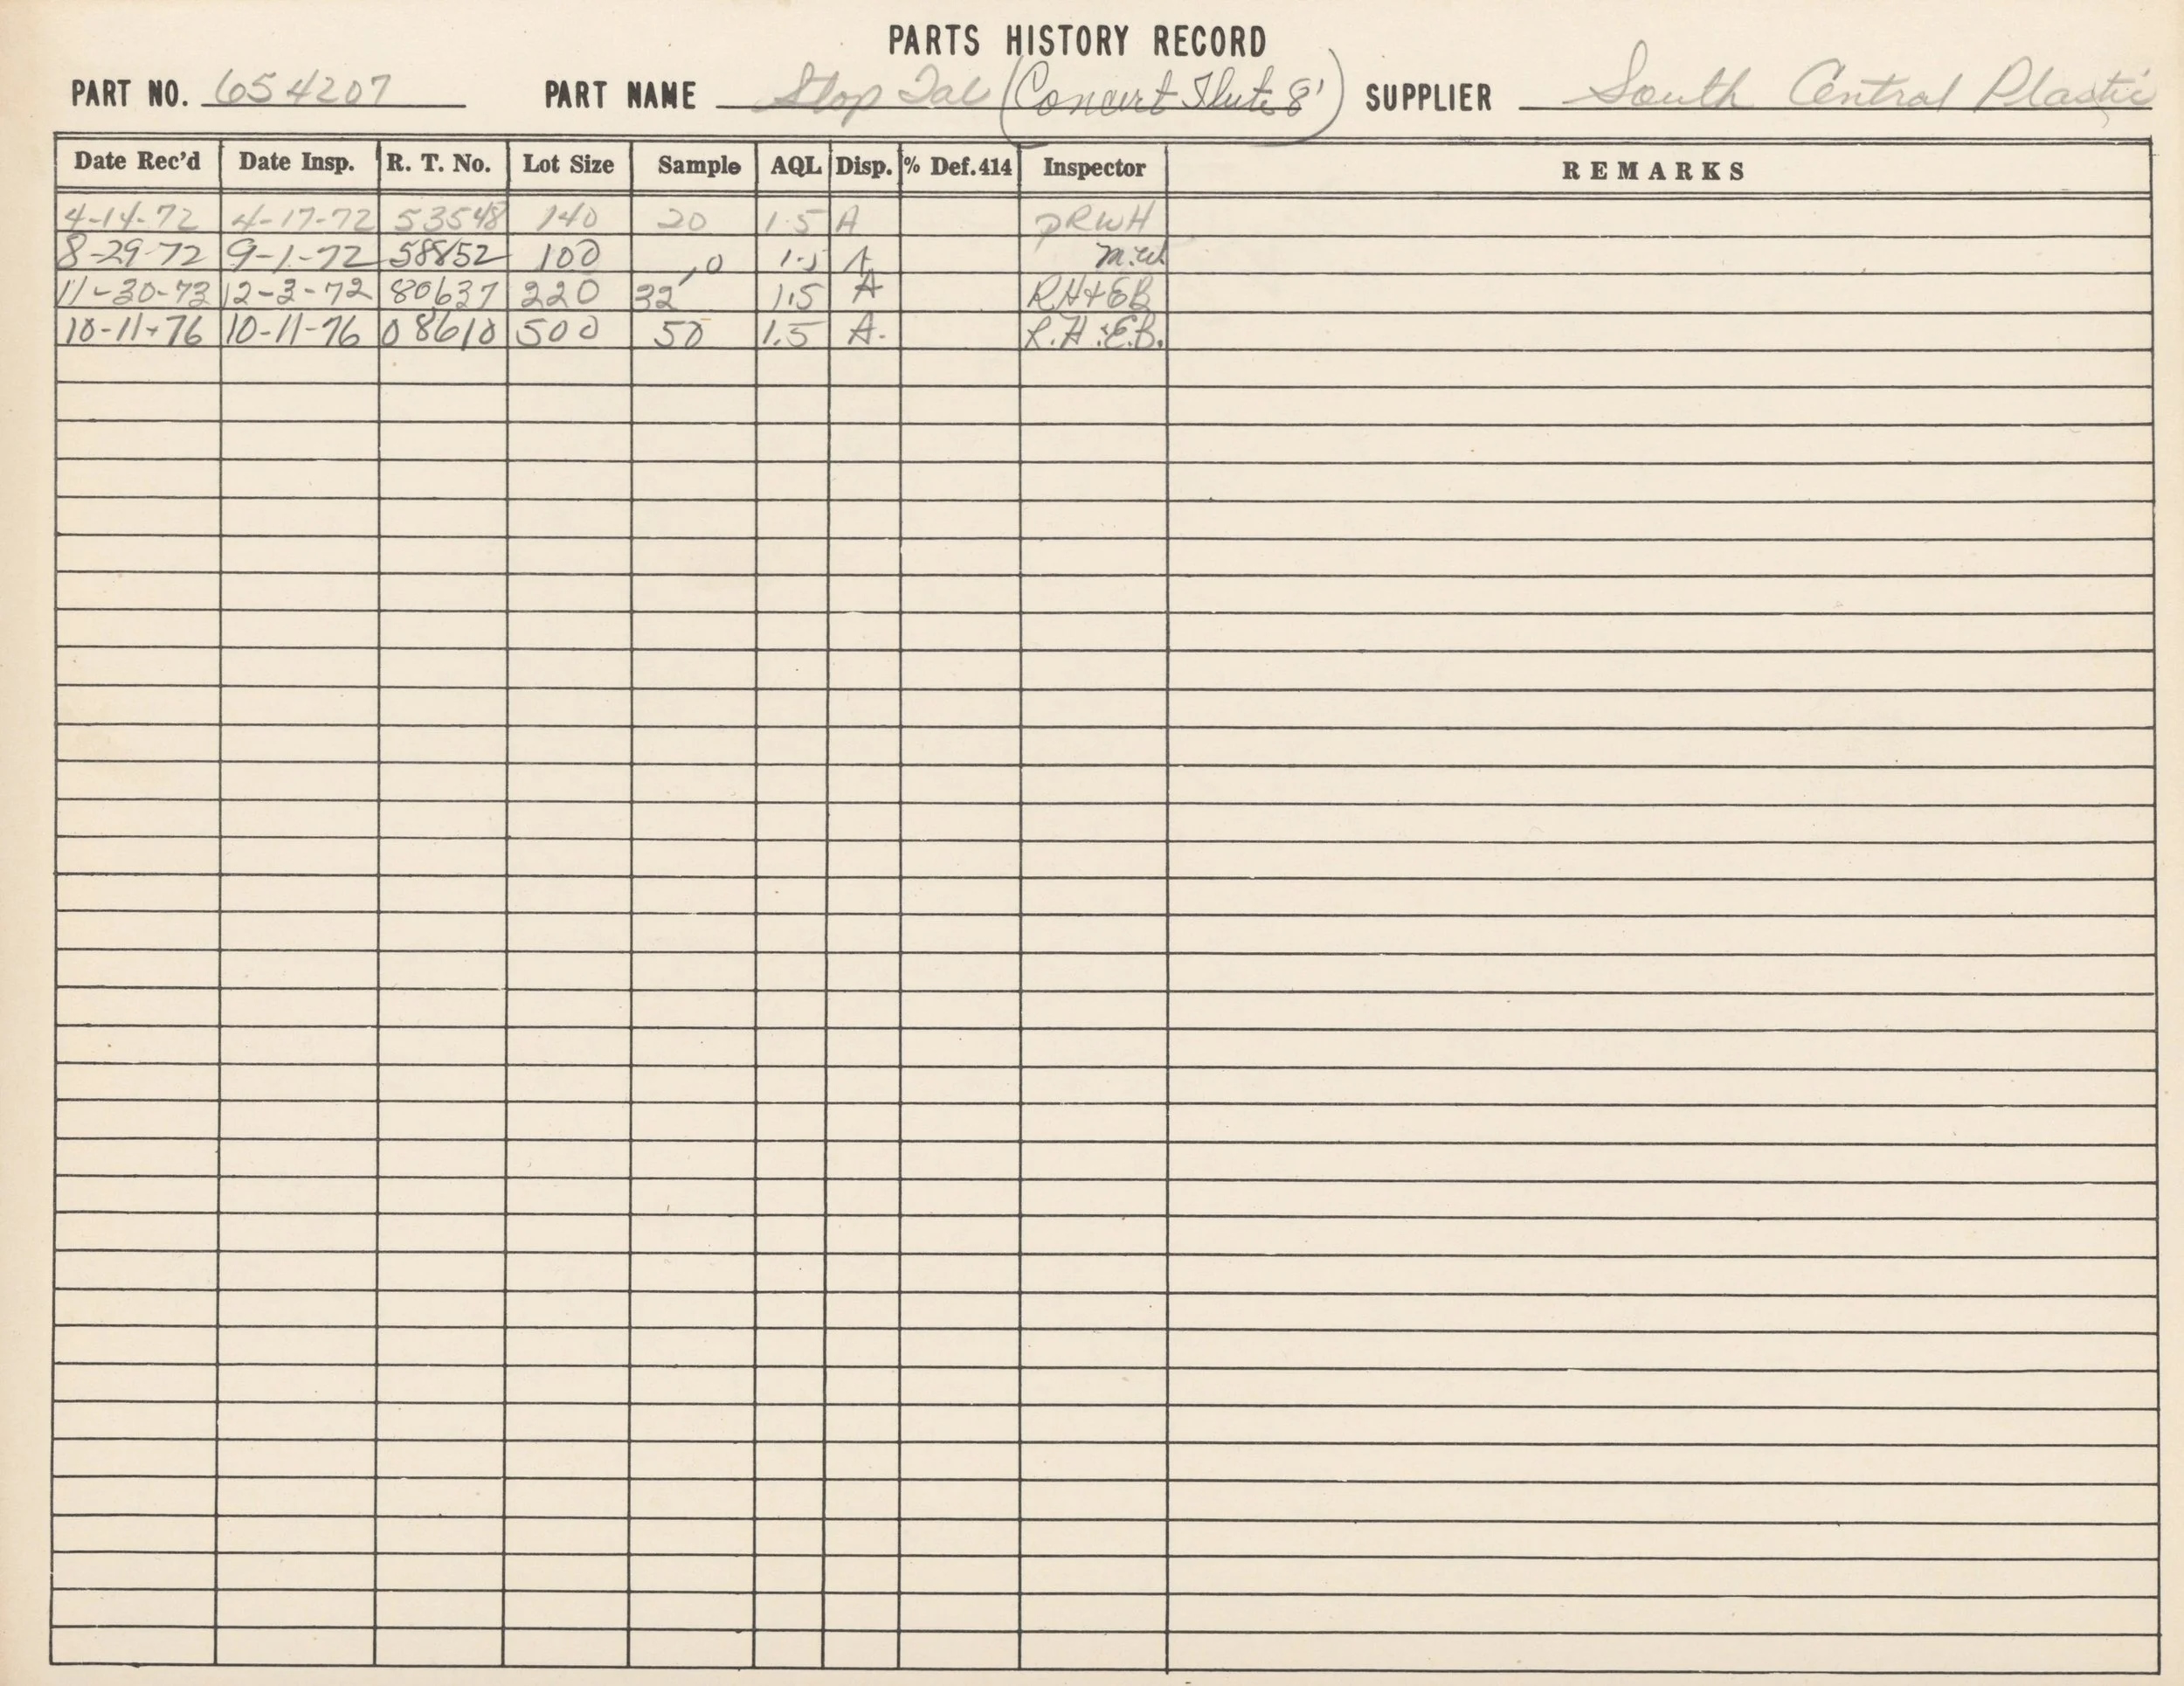 PARTS HISTORY RECORD
PART NO. 654207 PART NAME Stop Tab (Concert Flute 8') SUPPLIER South Central Plastic
Date Rec'd Date Insp. R. T. No. Lot Size Sample AQL Disp. % Def.414 Inspector REMARKS
4-14-72 4-17-72 53548 140 20 1.5 A DRWH
8-29-72 9-1-72 58852 100 1.5 A
11-30-73 12-3-72 80637 220 32 1.5 A RH+EB
10-11-76 10-11-76 08610 500 50 1.5 A. R.H.:E.B.